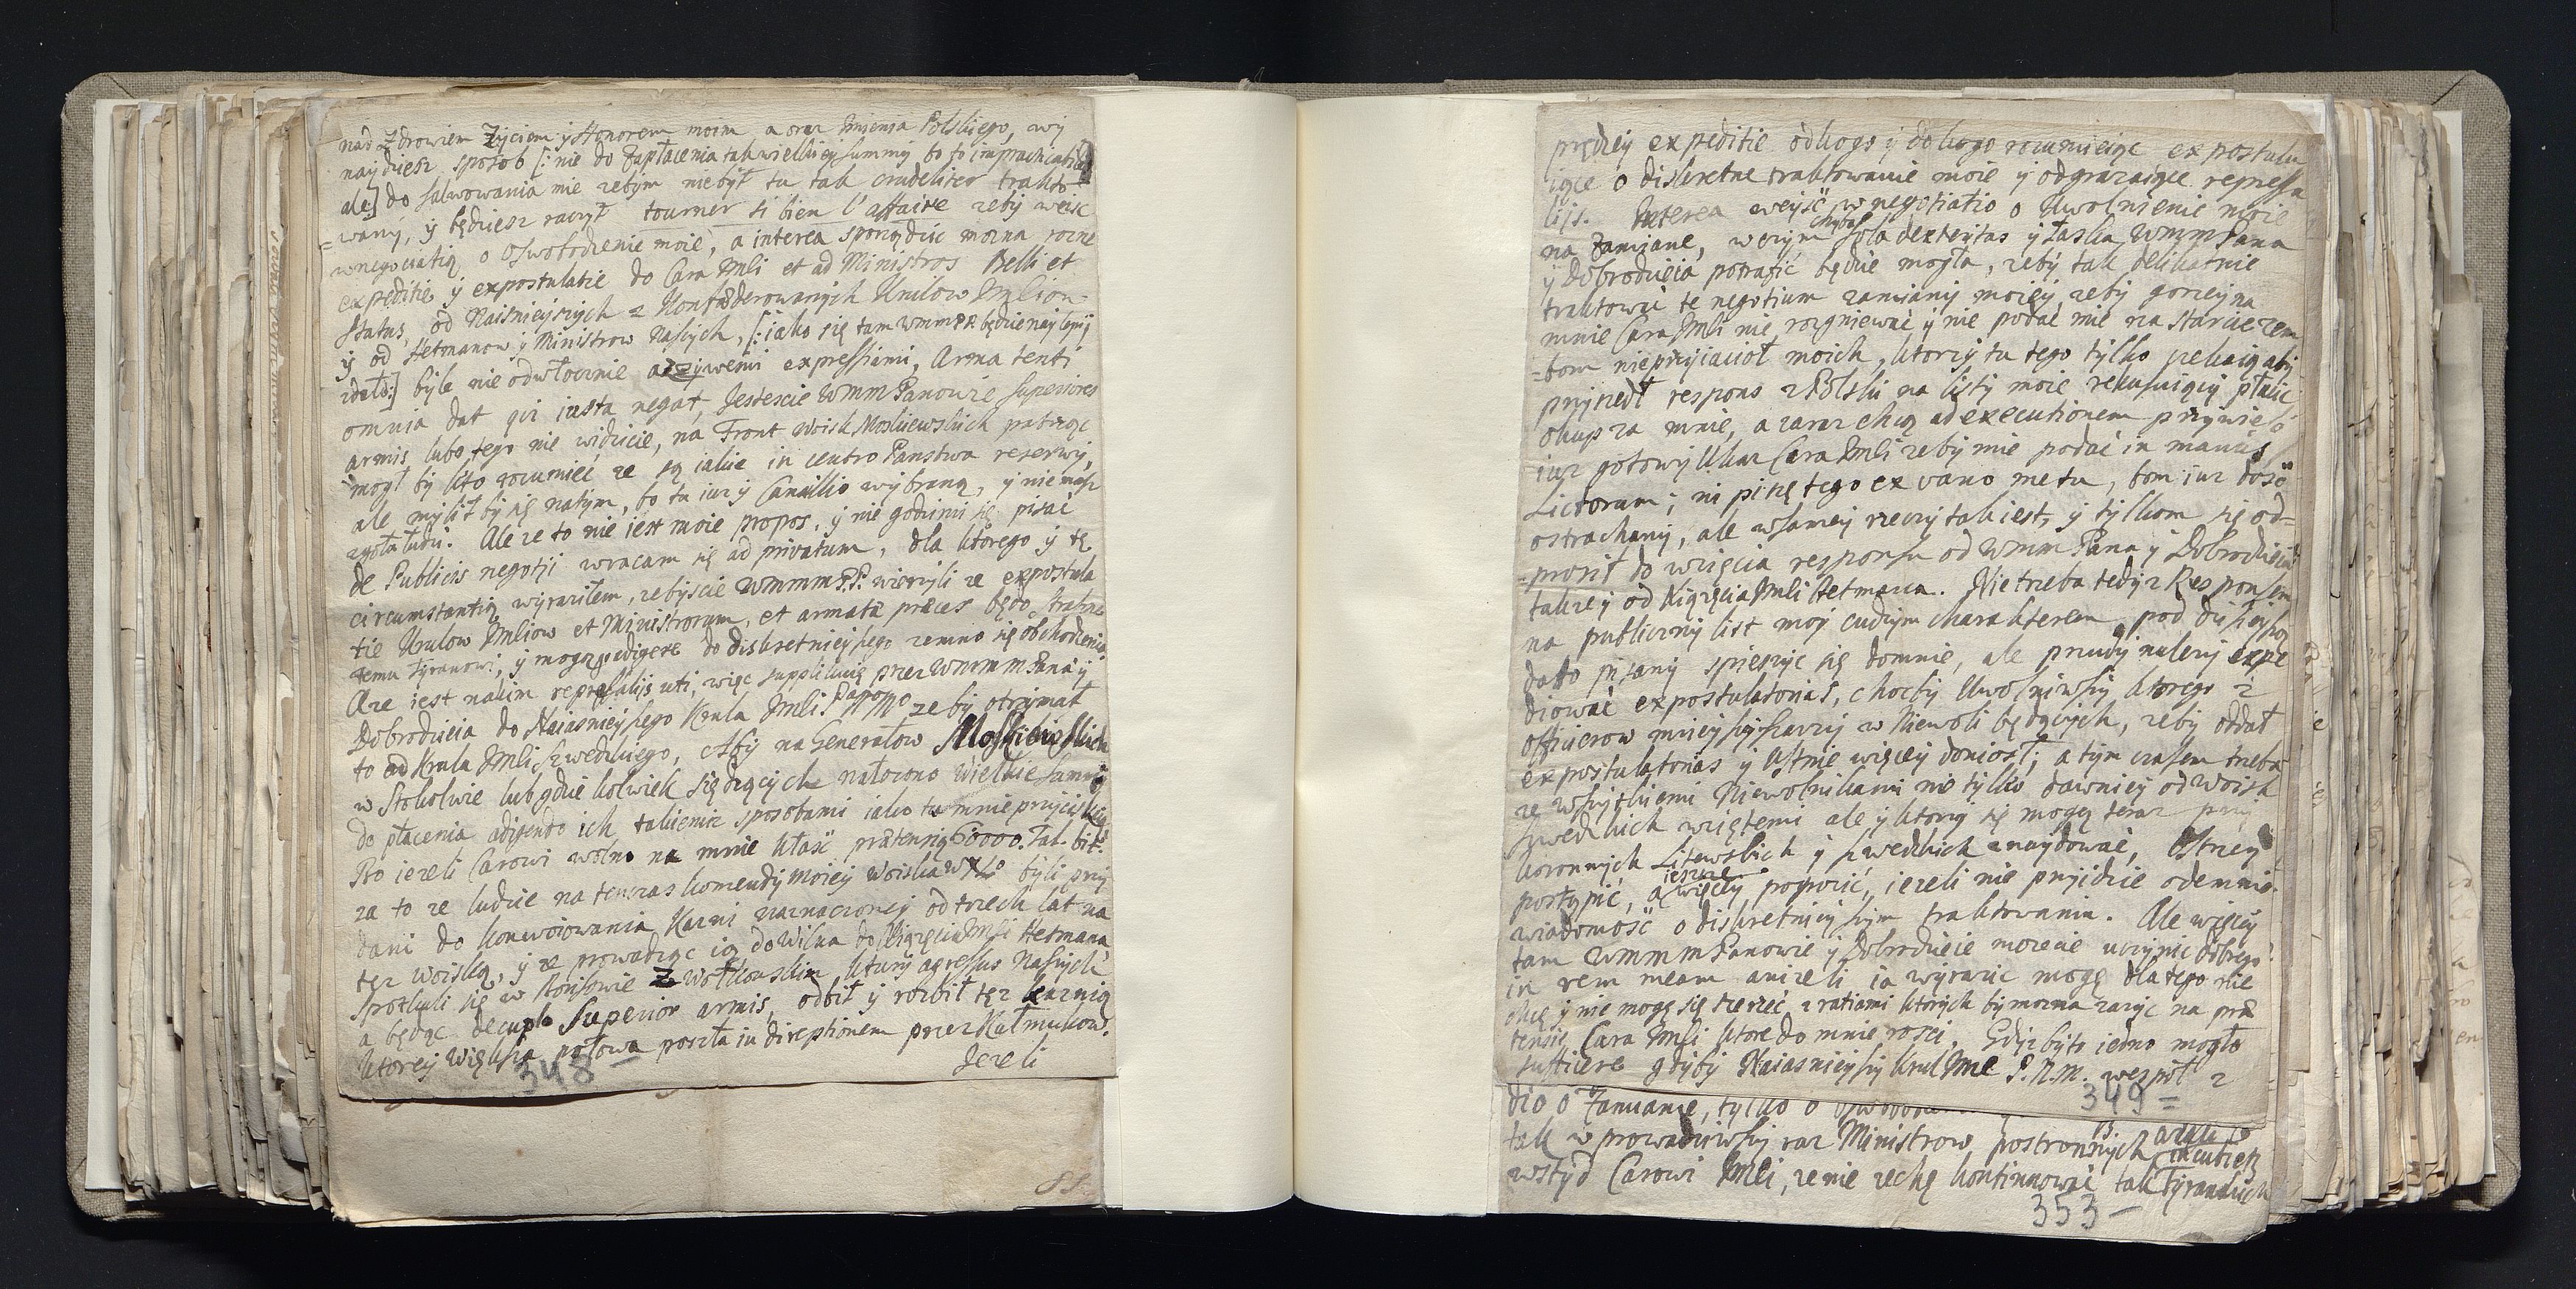 nad Zdrowiem Zyciem y Honorem moim a oraz Imienia Polskiego, wy
naydziesz sposob [: nie do Zapłacenia tak wielkiey summy bo to impracticabile
ale:] do salwowania mie zebym niebył tu tak crudeliter trakto-
=wany, y będziesz raczył tourner si bien l'affaire zeby weisc
wnegociatią o Oswobodzenie moie, a interea sporządzic mozna rozne
expeditie y expostulatie do Cara Imli et ad Ministros Belli et
Status, od Naiasnieyszych z Konfæderowanych Krulow Imliow
y od Hetmanow y Ministrow naszych, [: iako się tam wmmPP będzie naylepiy
zdało:] byle nie odwłocznie a zzywemi expressiami, Arma tenti
omnia dat qui iusta negat, Jestescie WmmPanowie superiores
armis lubo tego nie widzicie, na Front Woisk Moskiewskich patrząc
mogł by kto rozumieć ze są iakie in centro Panstwa reserwy,
ale mylił by się natym, bo tu iuz y Canaillio wybraną, y nie masz
zgoła ludzi. Ale ze to nie iest moie propos, y nie godzimi się pisać
de Publicis negotÿ wracam się ad privatum, dla ktorego y tę
circumstantią wyraziłem, zebyscie WmmmPP. wierzyli ze expostula
tie Krulow Imliow et Ministrorum, et armatæ preces będo straszne
temu Tyranowi, y mogo redigere do diskretnieyszego zemno się obchodzenia
Aze iest nakim represalÿs uti, więc supplikuię przez WmmmPana y
Dobrodzieia do Naiasnieyszego Krula Imli Panam̃o ze by otrzymał
to ad Krula Imli Szwedzkiego, Aby na Generałow Moskiewskich
w Stokolmie lub gdzie kolwiek siędzących nałozono wielkie summy
do płacenia adigendo ich takiemiz sposobami iako tu mnie przyciskaią
Bo iezeli Carowi wolno na mnie kłaść prætensią 60000. Tal. bit.
za to ze ludzie na tenczas komendy moiey Woiska WXLo byli przy
dani do konwoiowania Kazni naznaczoney od trzech lat na
tez woisko, y ze prowadząc ią do Wilna do Xiązęcia Imsi Hetmana
spotkali się w Borysowie z Wołkonskim ktury agressus naszych
a będąc decuplo Superior armis, odbił y rozbił tęz kaznią
ktorey większa połowa poszła in direptionem przez Kałmukow.
Jezeli
348
88
prędzey expeditie odkogo y dokogo rozumieiąc expostulu
iące o diskretne traktowanie moie y odgrazaiące repressa
lÿs. Interea weyść w negotiatio o Uwolnienie moie
na Zamiane, wczym chyba sola dexteritas y łaska WmmPana
y Dobrodzieia potrafić będzie mogła, zeby tak delikatnie
traktować te negotium zamiany moiey, zeby gorzey na
mnie Cara Imli nie rozgniewać y nie podać mie na starcie zem
=bom nieprzyiacioł moich, ktorzy tu tego tylko czekaią aby
przyszedł respons z Polski na listy moie rekusuiący płacić
okup za mnie, a zaraz chcą ad executionem przywieść
iuz gotowy Ukaz Cara Imli zeby mie podać in manus
Lictorum; ni piszę tego ex vano metu, bom iuz dość
ostrachany, ale wsamey rzeczy tak iest, y tylkom się od=
=prosił do wzięcia responsu od Wmm Pana y Dobrodzieia
takze y od Xiązęcia Imli Hetmana. Nie trzeba tedy z Responsem
na publiczny list moy cudzym charakterem pod dzisieyszo
dato pisany spieszyc się domnie, ale przudy nalezy expe
diować expostulatorias, chocby Uwolniwszy ktorego z
officierow mnieyszey szarzy w Niewoli będących, zeby oddał
expostulatorias y Ustnie więcey doniosł; a tym czasem trzeba
ze wszytkiemi Niewolnikami nie tylko dawniey od Woisk
szwedzkich wziętemi ale y ktorzy się mogą teraz przy
koronnych Litewskich y szwedzkich znaydować, Ostrzey
postąpić, a ieszcze więcey pogrozić, iezeli nie przyidzie odemnie
wiadomość o diskretnieyszym traktowaniu. Ale więcey
tam WmmmPanowie y Dobrodzieie mozecie uczynic dobrego
in rem meam anizeli ia wyrazic mogę dlatego nie
chcę y nie mogę się szerzeć z ratiami ktorych by mozna zazyc na præ
tensie Cara Imli ktore do mnie rosci. Gdyz byto iedno mogło
sufficere gdyby Naiasnieyszy Krul Imc P.N.M. wespoł z
349
dio o Zamianie, tylko o
tak w prowadziwszy raz Ministrow postronnych
wstyd Carowi Imli, ze nie zechę kontinuować tak Tyranskich
353